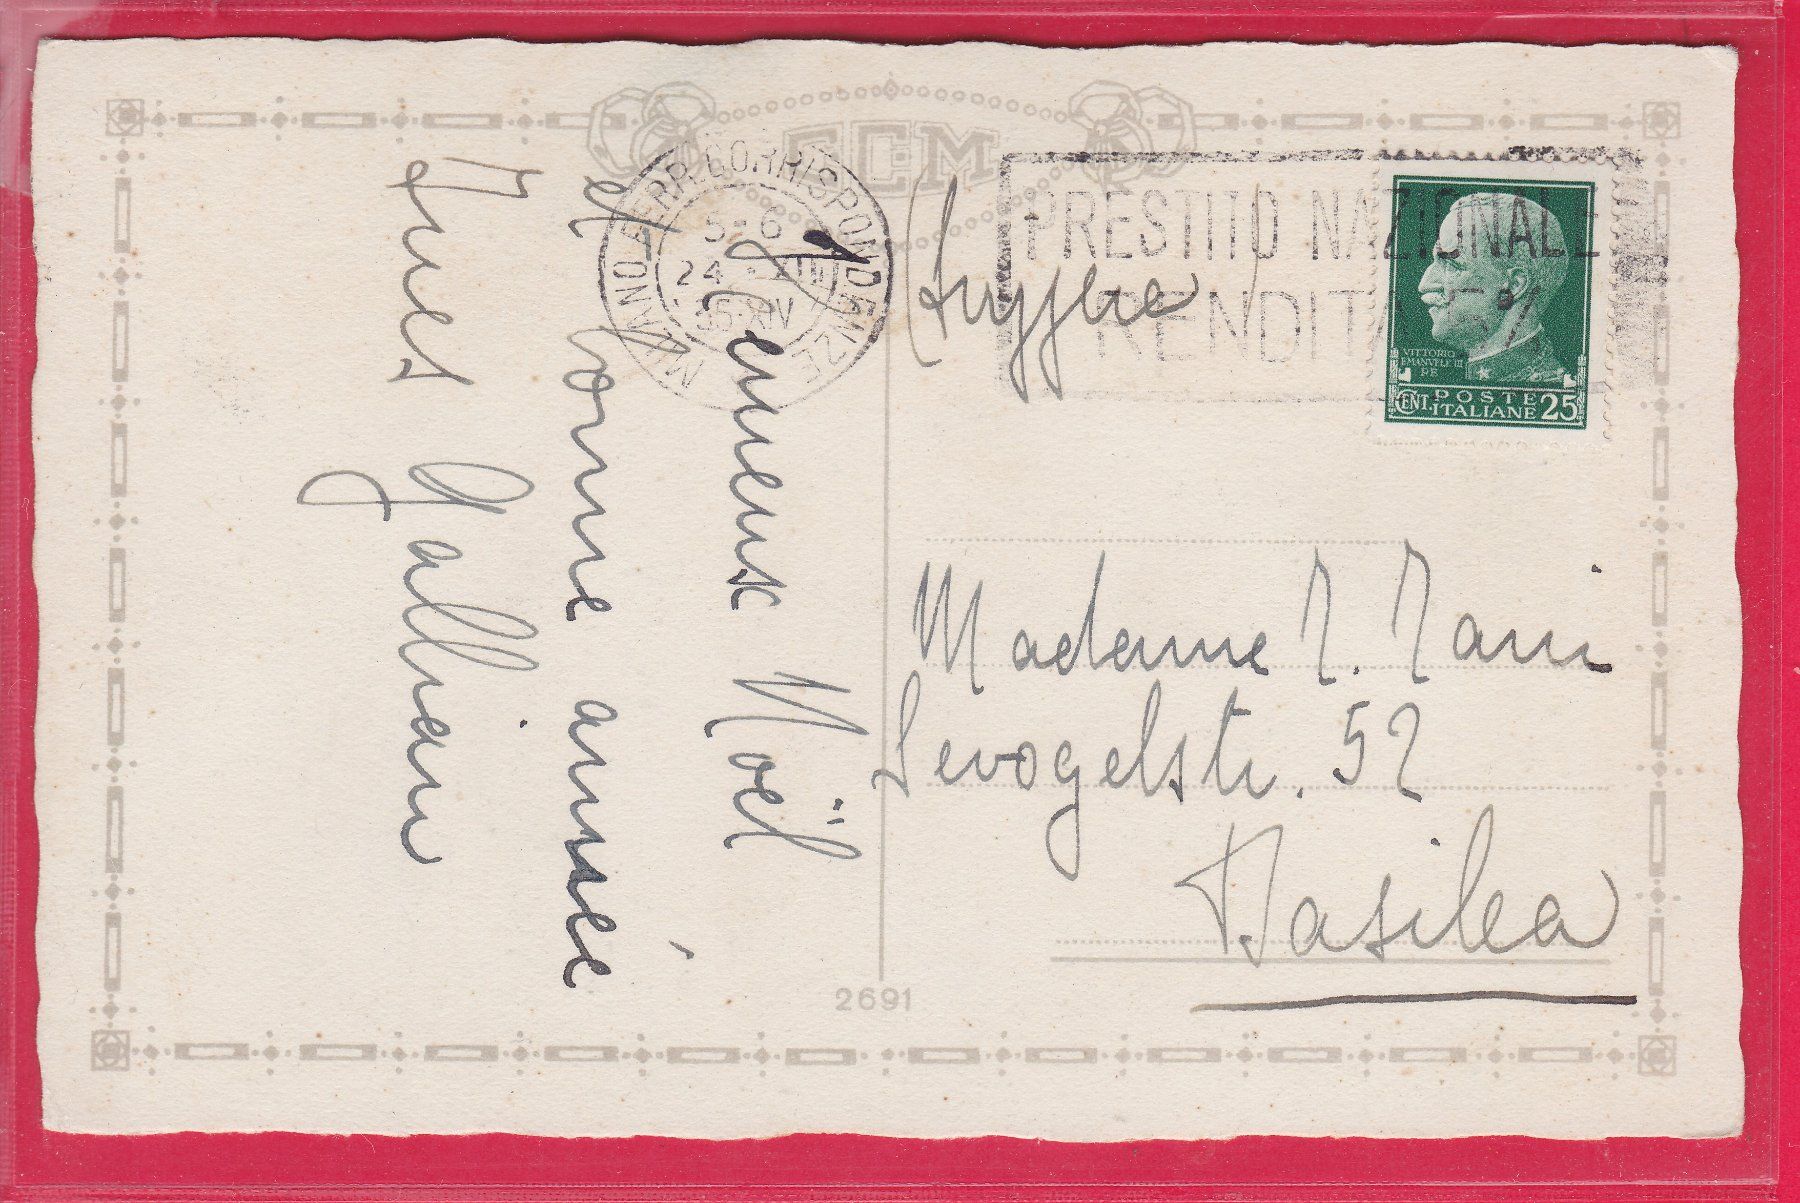 ECM
MILANO FERR. CORRISPONDENZE
5-6
24 XII
35·XIV
PRESTITO NAZIONALE
RENDITA 5%
VITTORIO
EMANVELE III
RE
CENT. POSTE ITALIANE 25
Joyeux Noël
et bonne année
Ines Galliani
(Suyjere)
Madame
Sevogelstr. 52
Basilea
2691